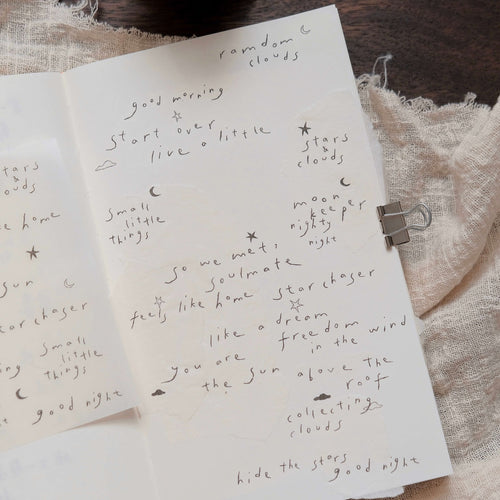 ramdom
clouds
good morning
start over
live a little
stars
&
clouds
small
little
things
moon
keeper
nighty
night
so we met,
soulmate
feels like home
star chaser
like a dream
freedom
in the wind
you are
the sun above the
roof
collecting
clouds
hide the stars
good night
stars
&
clouds
home
sun
chaser
small
little
things
good night